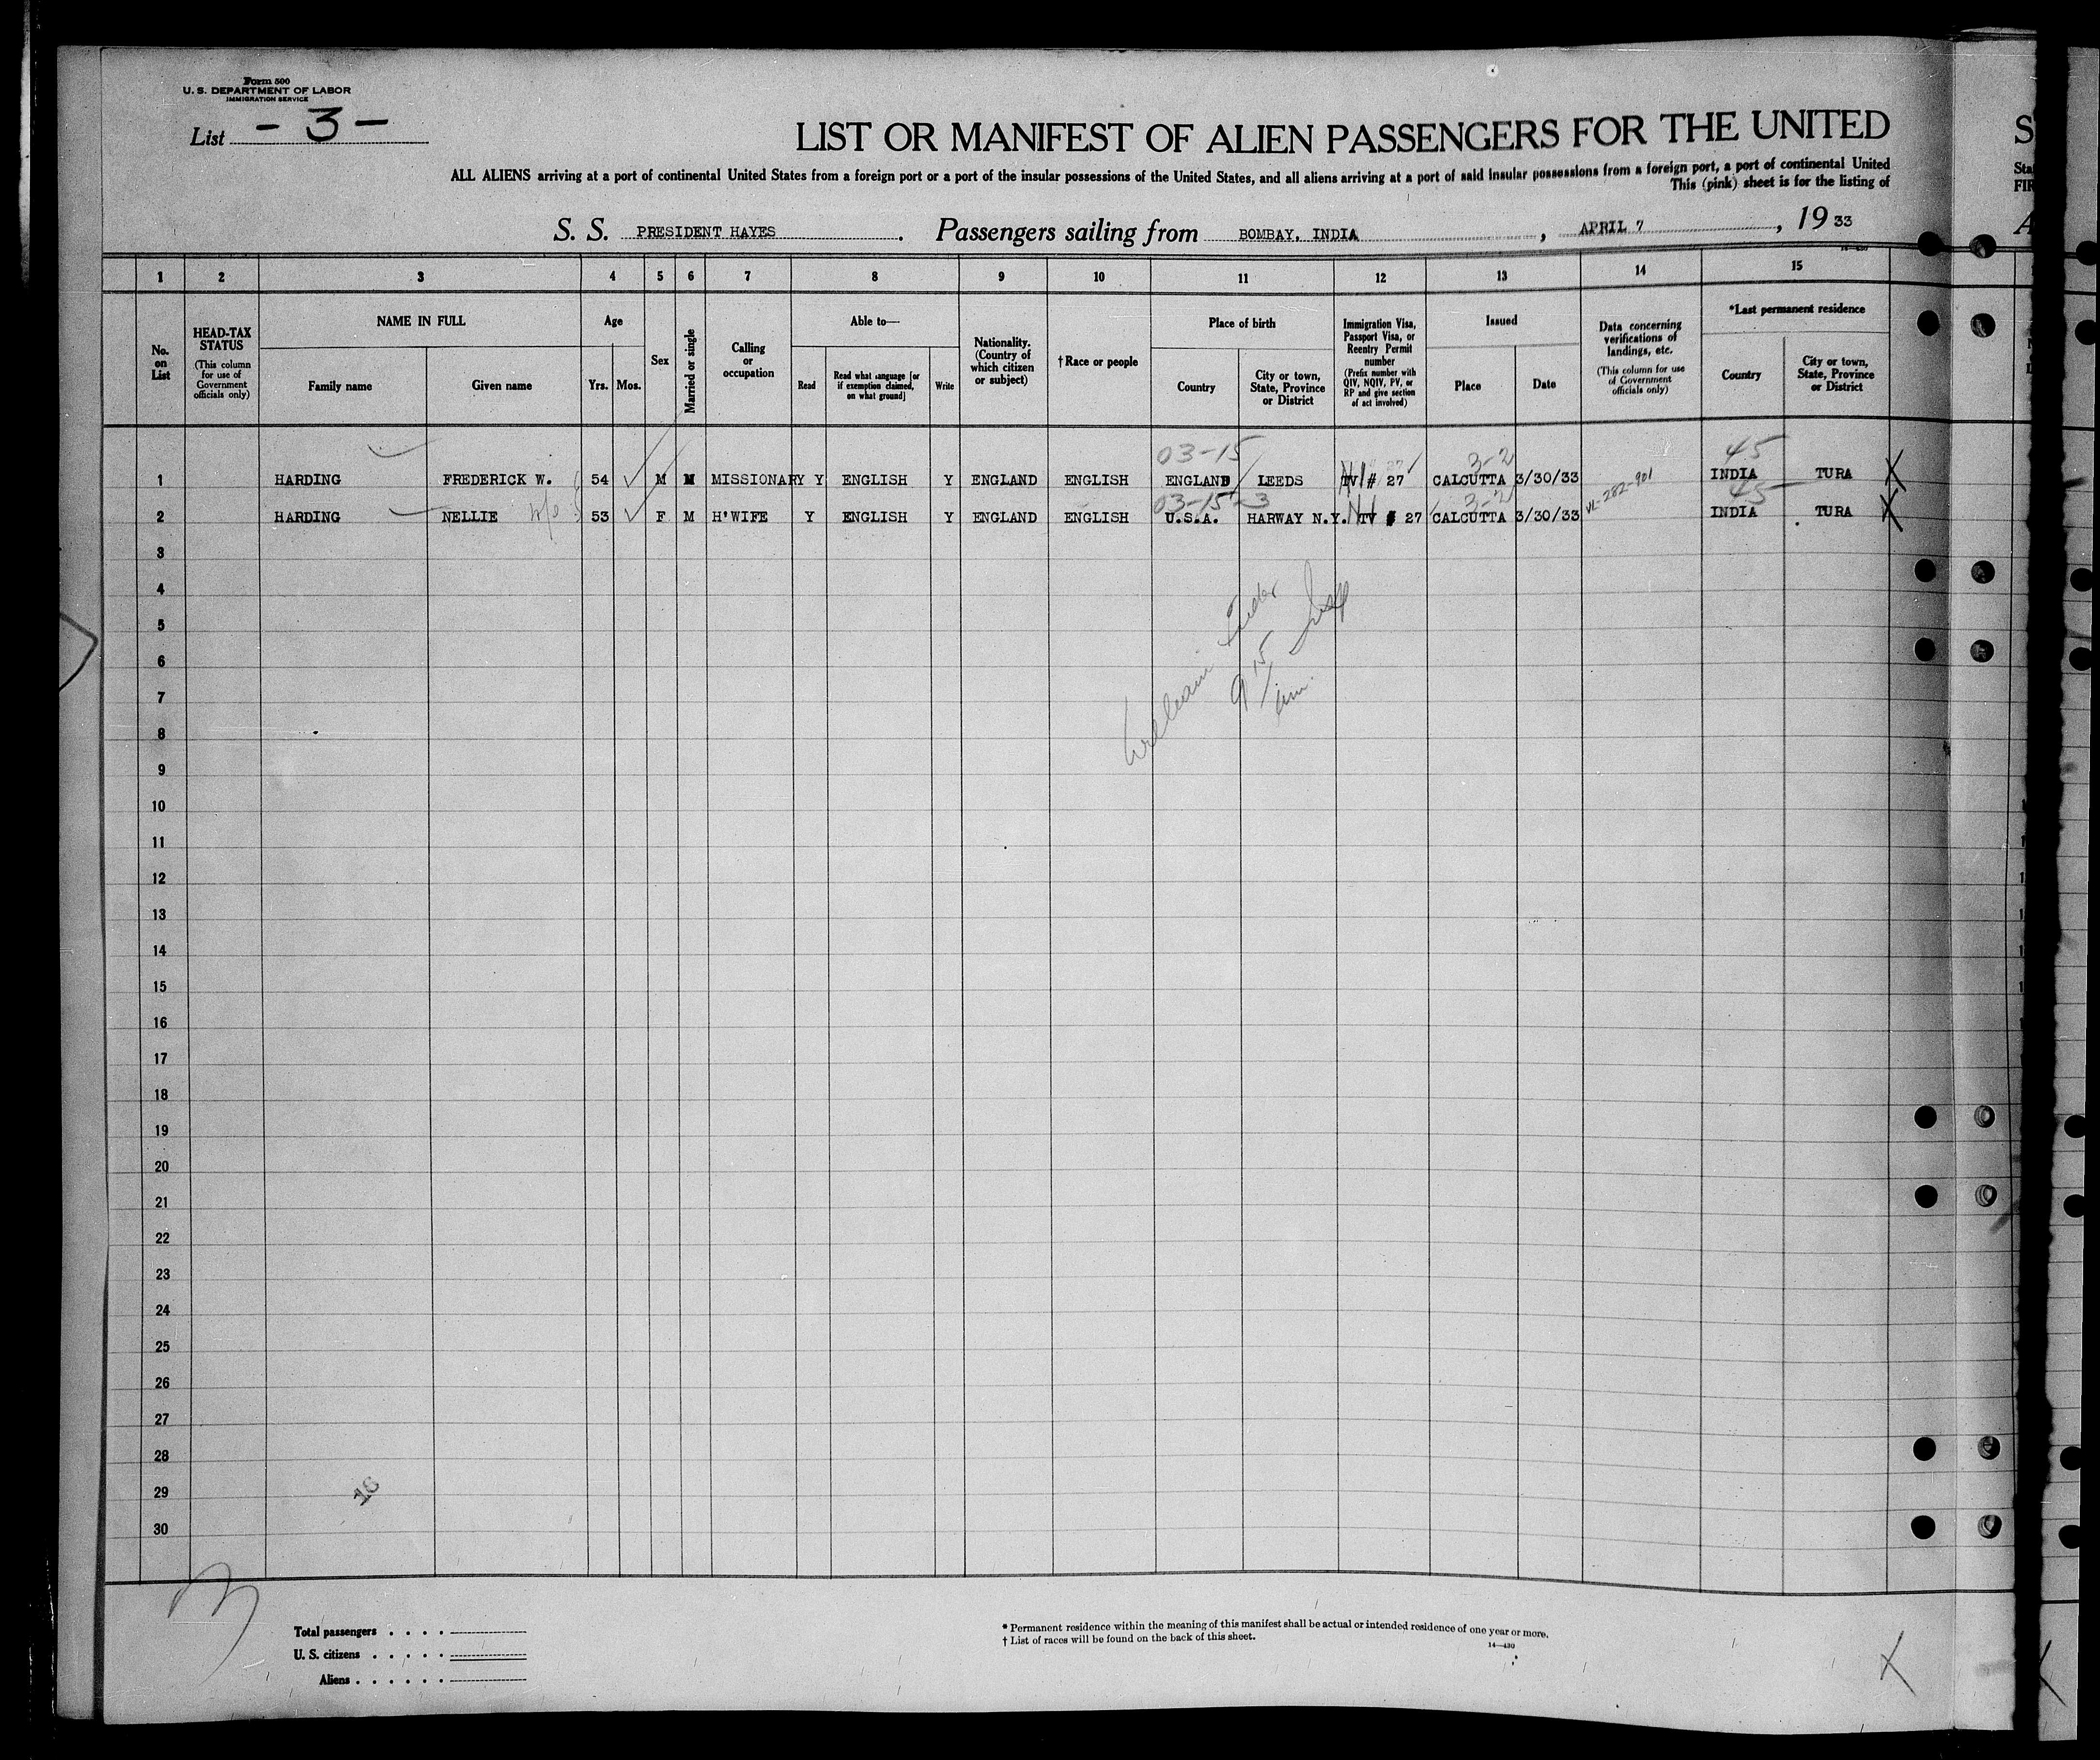 Form 500
U. S. DEPARTMENT OF LABOR
IMMIGRATION SERVICE
List - 3 -
LIST OR MANIFEST OF ALIEN PASSENGERS FOR THE UNITED
ALL ALIENS arriving at a port of continental United States from a foreign port or a port of the insular possessions of the United States, and all aliens arriving at a port of said insular possessions from a foreign port, a port of continental United
This (pink) sheet is for the listing of
S. S. PRESIDENT HAYES. Passengers sailing from BOMBAY, INDIA, APRIL 7, 19 33
1 2 3 4 5 6 7 8 9 10 11 12 13 14 15
No. on List
HEAD-TAX STATUS
(This column for use of Government officials only)
NAME IN FULL
Family name
Given name
Age
Yrs.
Mos.
Sex
Married or single
Calling or occupation
Able to—
Read
Read what language [or if exemption claimed, on what ground]
Write
Nationality. (Country of which citizen or subject)
† Race or people
Place of birth
Country
City or town, State, Province or District
Immigration Visa, Passport Visa, or Reentry Permit number
(Prefix number with QIV, NQIV, PV, or RP and give section of act involved)
Issued
Place
Date
Data concerning verifications of landings, etc.
(This column for use of Government officials only)
*Last permanent residence
Country
City or town, State, Province or District
03-15 3-2 45
1 HARDING FREDERICK W. 54 M M MISSIONARY Y ENGLISH Y ENGLAND ENGLISH ENGLAND LEEDS # 27 CALCUTTA 3/30/33 INDIA TURA X
03-15-3 3-2 45
2 HARDING NELLIE 53 F M H'WIFE Y ENGLISH Y ENGLAND ENGLISH U.S.A. HARWAY N.Y. # 27 CALCUTTA 3/30/33 INDIA TURA X
3
4
5
6
7
8
9
10
11
12
13
14
15
16
17
18
19
20
21
22
23
24
25
26
27
28
29
30
16
Total passengers . . . .
U. S. citizens . . . . .
Aliens . . . . . .
* Permanent residence within the meaning of this manifest shall be actual or intended residence of one year or more.
† List of races will be found on the back of this sheet.
14—430
X